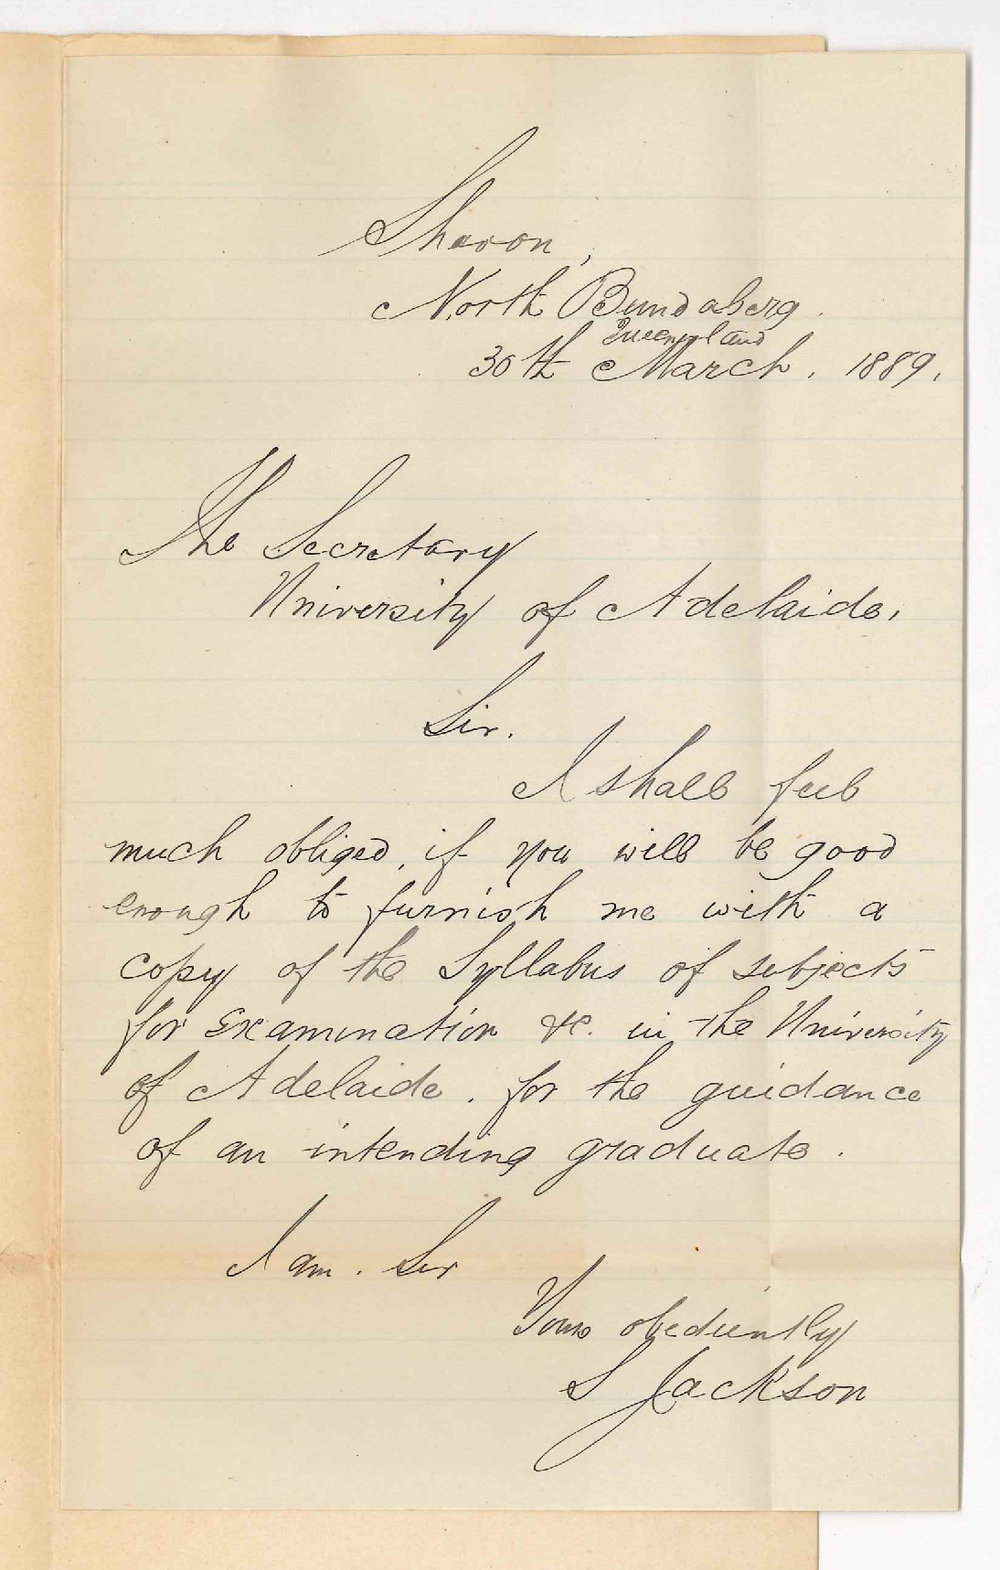 Sharon,
North Bundaberg.
Queensland
30th March. 1889.
The Secretary
University of Adelaide,
Sir.
I shall feel
much obliged, if you will be good
enough to furnish me with a
copy of the Syllabus of subjects
for Examination &c. in the University
of Adelaide. for the guidance
of an intending graduate.
I am. Sir
Yours obediently
S Jackson